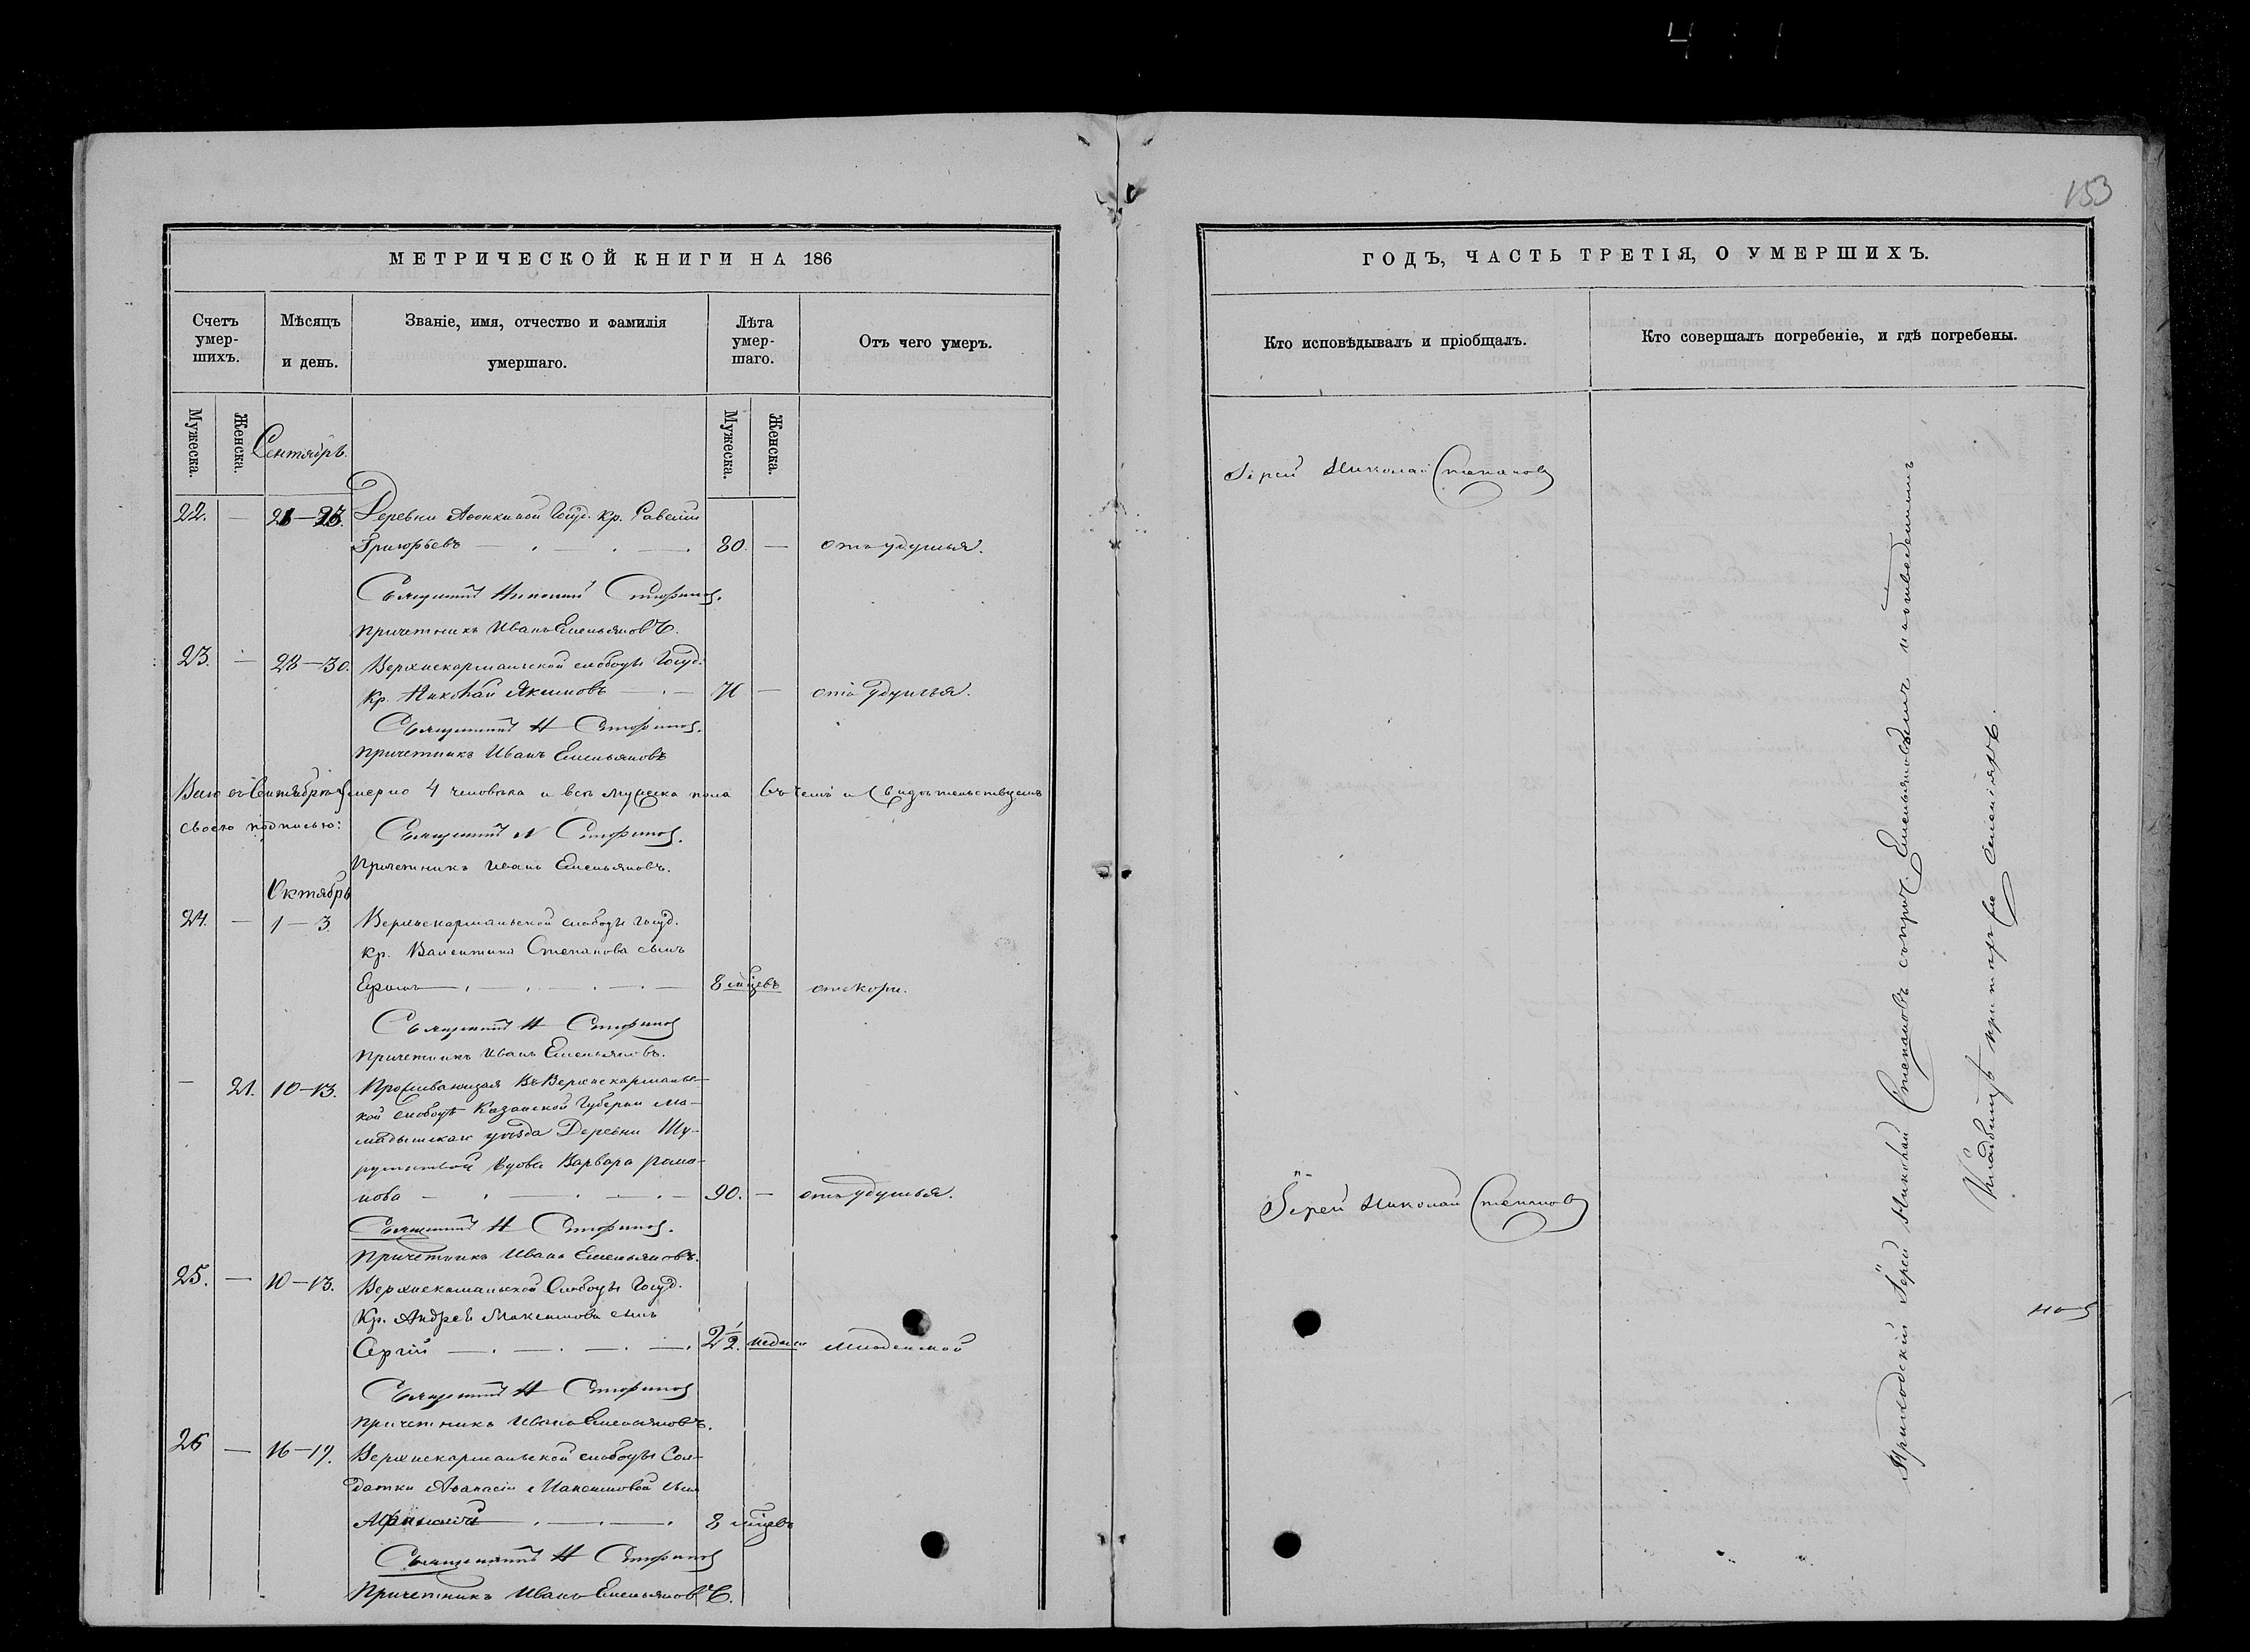 153
МЕТРИЧЕСКОЙ КНИГИ НА 186
Счетъ умер-шихъ.
Мѣсяцъ и день.
Званіе, имя, отчество и фамилія умершаго.
Лѣта умер-шаго.
Отъ чего умеръ.
Мужеска.
Женска.
Мужеска.
Женска.
Сентябрь.
22. — 21—23. Деревни Аѳонкиной Госуд. Кр. Савелій
Григорьевъ 80. — отъ удушья.
Священникъ Николай
Причетникъ Иванъ Емельяновъ.
23. — 28—30. Верхнекармальской слободы Госуд.
Кр. Николай Якимовъ — отъ удушья.
Священникъ Н
Причетникъ Иванъ Емельяновъ
Всего въ Сентябрѣ умерло 4 человѣка и всѣ мужеска пола въ чемъ и свидѣтельствуемъ
своею подписью:
Священникъ Н
Причетникъ Иванъ Емельяновъ.
Октябрь
24. — 1—3. Верхнекармальской слободы госуд.
Кр. Валентина Степанова сынъ
8 мѣсяцевъ отъ кори.
Священникъ Н
Причетникъ Иванъ Емельяновъ.
— 21. 10—13. Проживающая въ Верхнекармальс-
кой слободѣ Казанской Губерніи Ма-
мадышскаго уѣзда Деревни
вдова Варвара Рома-
нова 90. — отъ удушья.
Священникъ Н
Причетникъ Иванъ Емельяновъ.
25. — 10—13. Верхнекармальской Слободы Госуд.
Кр. Андрея Максимова сынъ
Сергій 2 1/2. недѣли младенской
Священникъ Н
Причетникъ Иванъ Емельяновъ.
26 — 16—19. Верхнекармальской слободы Сол-
датки сынъ
8 мѣсяцевъ
Священникъ Н
Причетникъ Иванъ Емельяновъ.
ГОДЪ, ЧАСТЬ ТРЕТІЯ, О УМЕРШИХЪ.
Кто исповѣдывалъ и пріобщалъ.
Кто совершалъ погребеніе, и гдѣ погребены.
Іерей Николай Степановъ
Іерей Николай Степановъ
Приходскій Іерей Николай Степановъ съ прич. Емельяновымъ на отведенномъ
Кладбищѣ при